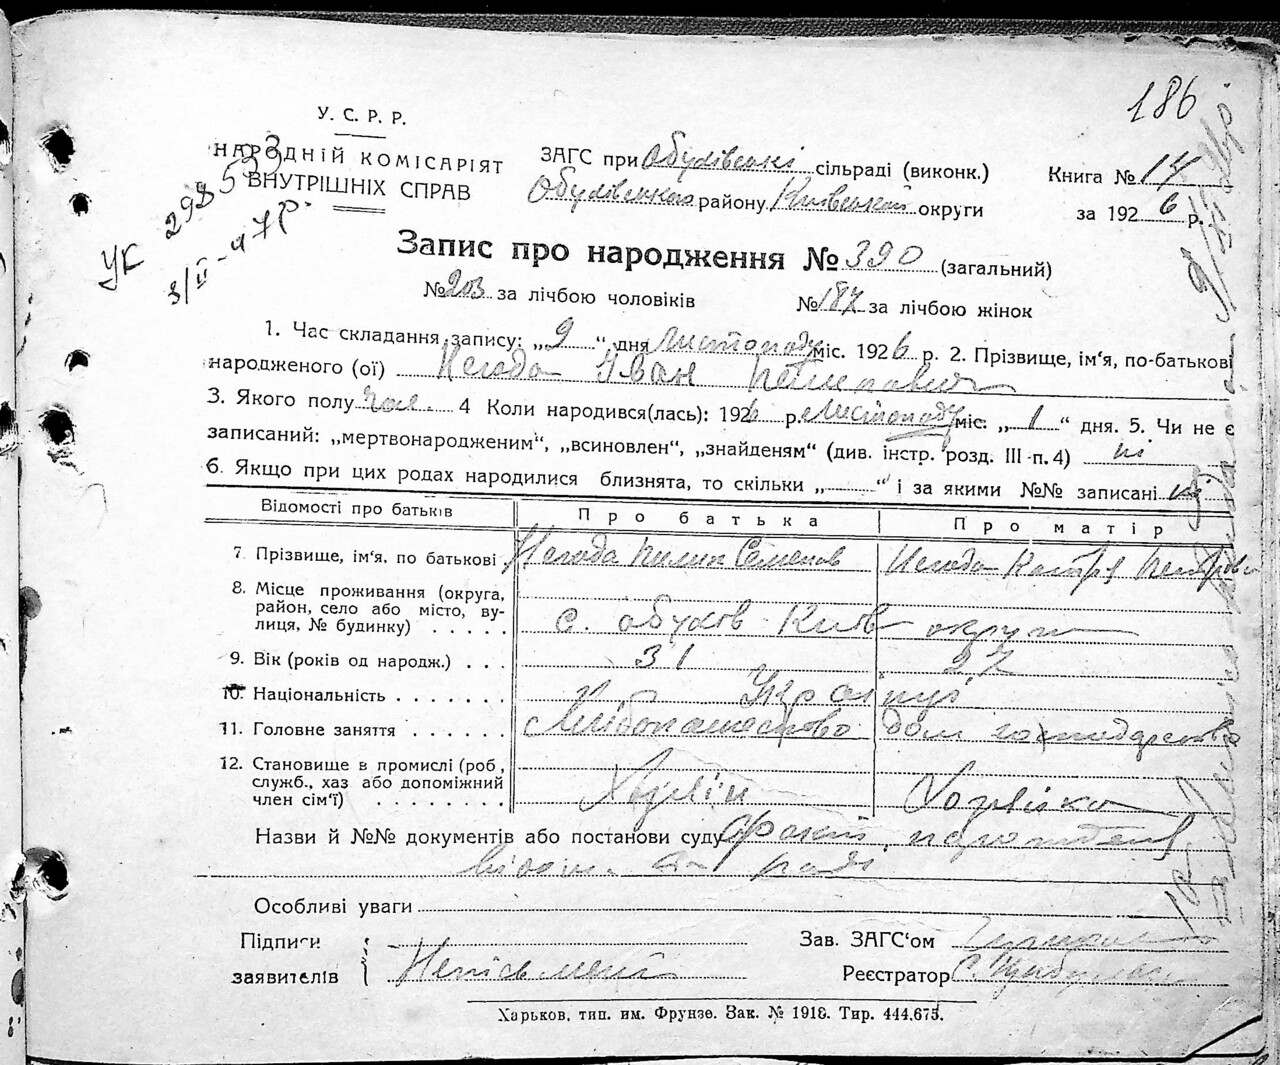 186
У. С. Р. Р.
НАРОДНІЙ КОМІСАРІЯТ
ВНУТРІШНІХ СПРАВ
УК
ЗАГС при Обухівські сільраді (виконк.) Книга № 14
Обухівського району Київської округи за 1926 р.
Запис про народження № 390 (загальний)
№ 203 за лічбою чоловіків № 187 за лічбою жінок
1. Час складання запису: „9“ дня листопаду міс. 1926 р. 2. Прізвище, ім'я, по-батькові
народженого (ої) Негода Іван Пилипович
3. Якого полу чол. 4 Коли народився(лась): 1926 р. Листопаду міс. „1“ дня. 5. Чи не є
записаний: „мертвонародженим“, „всиновлен“, „знайденям“ (див. інстр. розд. III п. 4) ні
6. Якщо при цих родах народилися близнята, то скільки „ “ і за якими №№ записані ні
Відомості про батьків Про батька Про матір
7. Прізвище, ім'я, по батькові Негода Пилип Семенов Негода Катря Петрова
8. Місце проживання (округа, район, село або місто, вулиця, № будинку) с. Обухов Київ округи
9. Вік (років од народж.) 31 27
10. Національність Українці
11. Головне заняття Хлібопашество дом господарство
12. Становище в промислі (роб., служб., хаз або допоміжний член сім'ї) Хазяїн Хозяйка
Назви й №№ документів або постанови суду
Особливі уваги
Підписи заявителів Неписьмені
Зав. ЗАГС'ом
Реєстратор
Харьков, тип. им. Фрунзе. Зак. № 1918. Тир. 444.675.